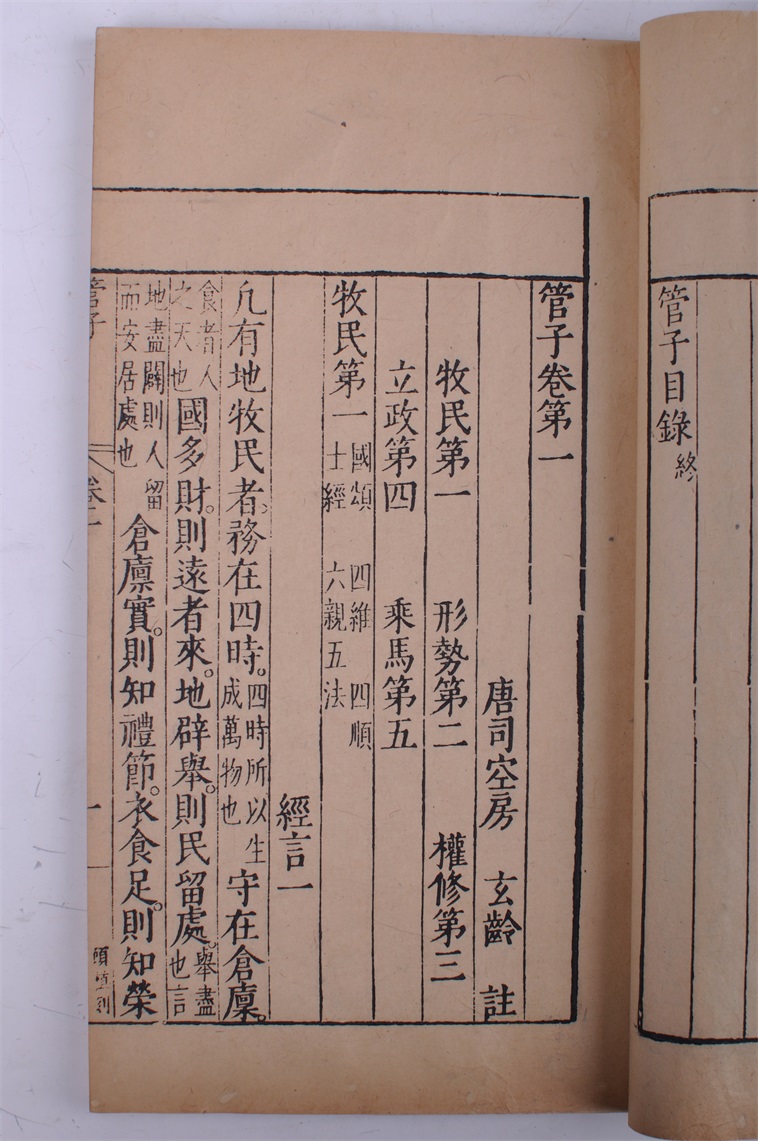 管子目錄終
管子卷第一
唐司空房　玄齡　註
牧民第一　形勢第二　權修第三
立政第四　乘馬第五
牧民第一國頌　四維　四順士經　六親五法
經言一
凢有地牧民者。務在四時。四時所以生成萬物也守在倉廩。
食者人之天也國多財。則遠者來。地辟舉。則民留處。舉盡也言
地盡闢則人留而安居處也倉廩實。則知禮節。衣食足。則知榮
管子　卷一　一